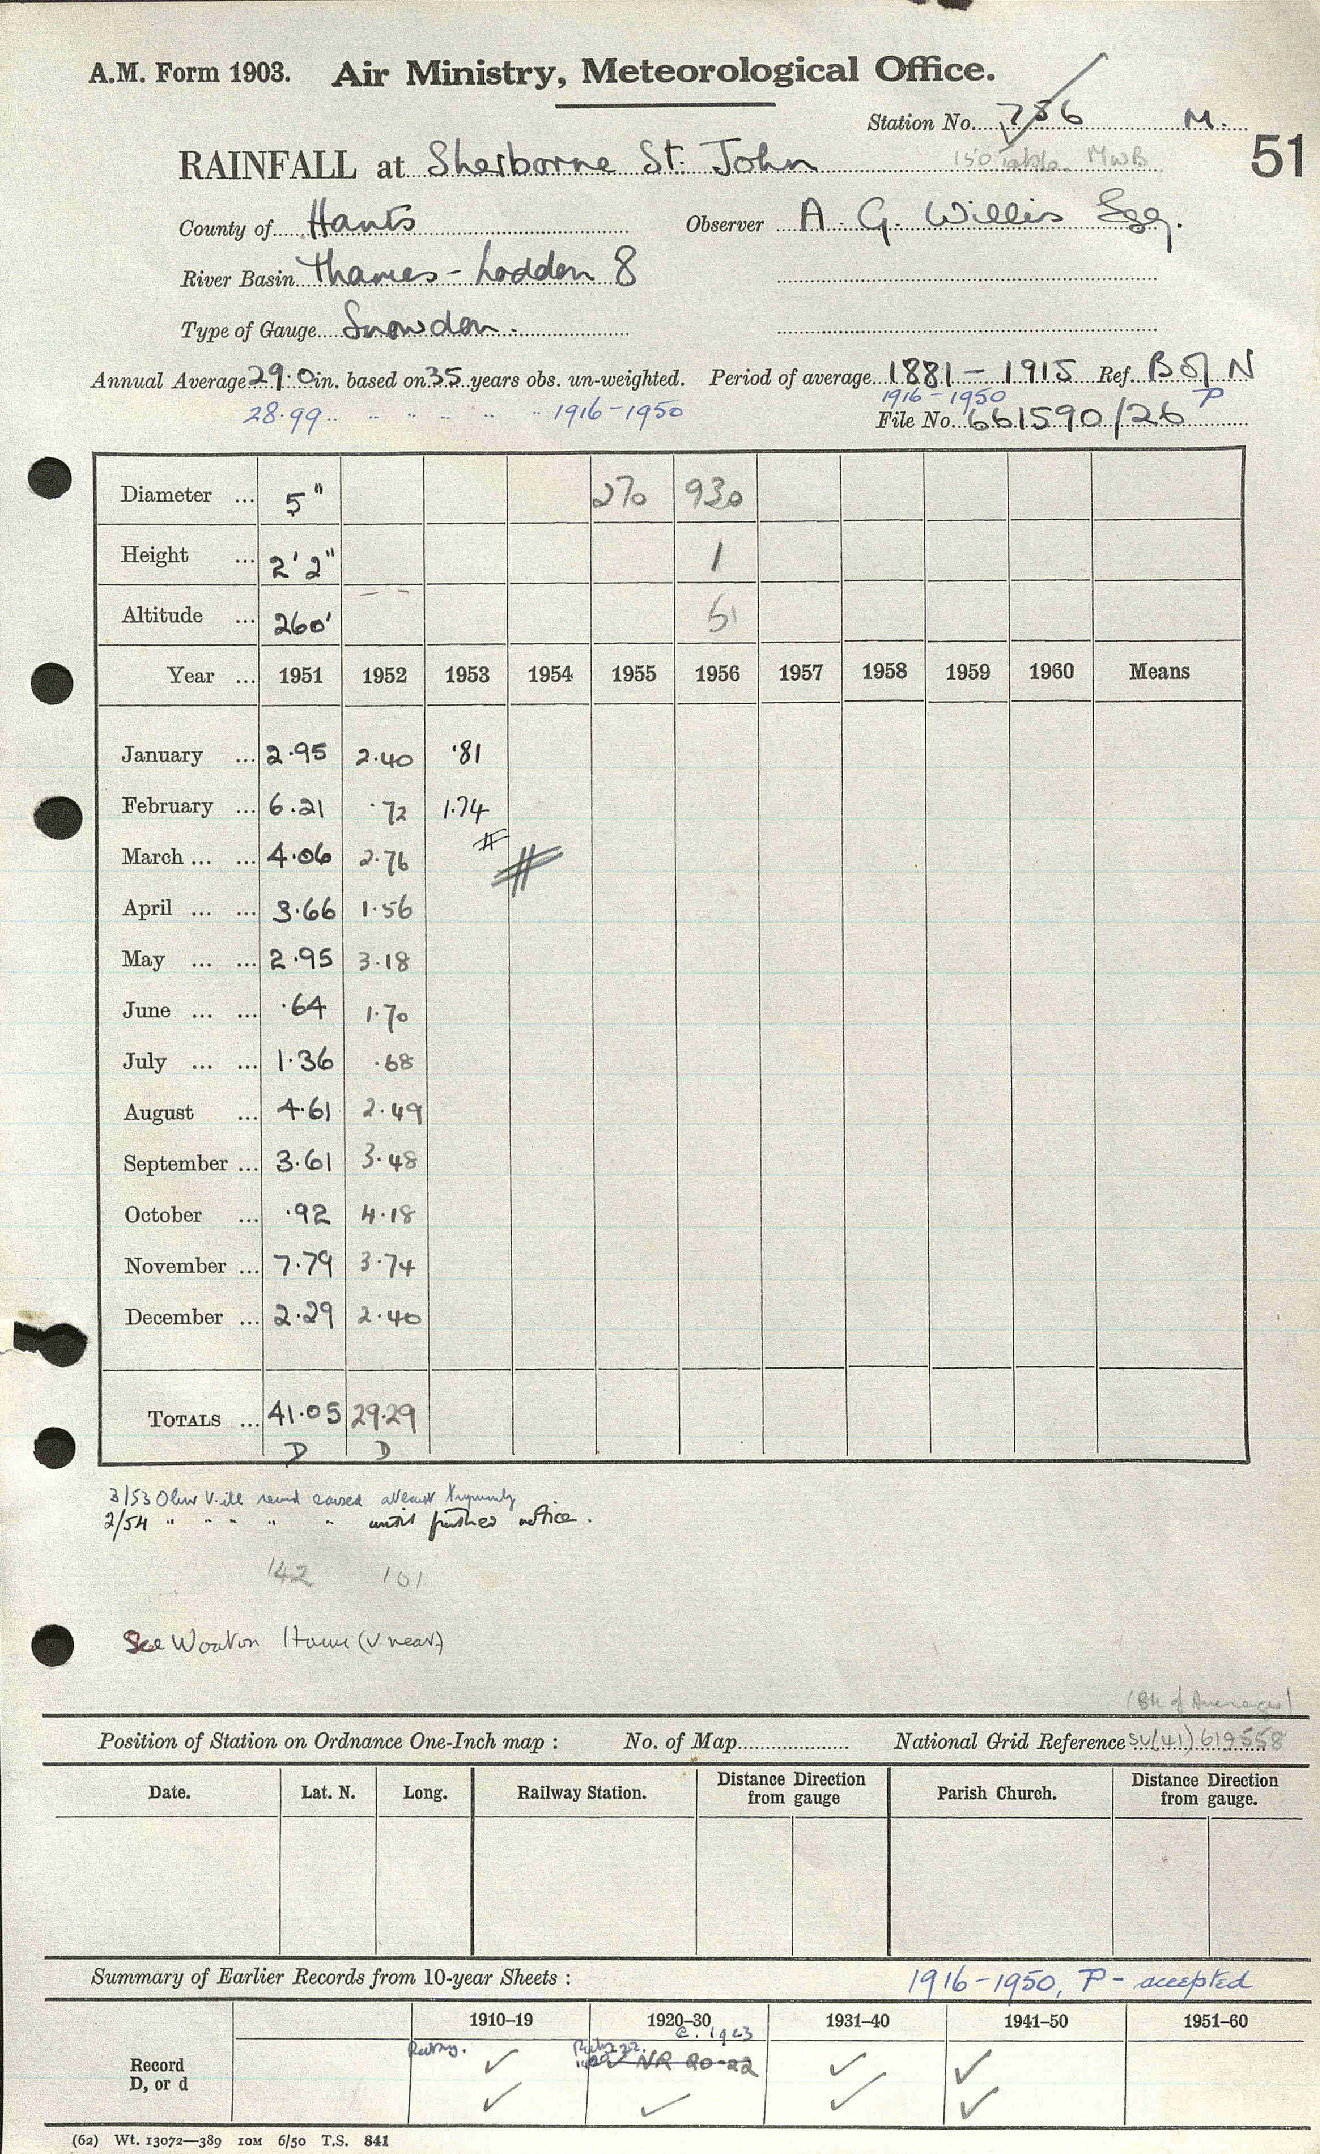 A.M. Form 1903. Air Ministry, Meteorological Office.
Station No. 756 M.
51
RAINFALL at Sherborne St. John MWB
County of Hants Observer A. G. Willis Esq.
River Basin Thames - Loddon 8
Type of Gauge Snowdon.
Annual Average 29.0 in. based on 35 years obs. un-weighted. Period of average 1881 - 1915 Ref. B of N
28.99 " " " " " 1916-1950 1916-1950 P
File No. 661590/26
Diameter ... 5" 270 930
Height ... 2' 2" 1
Altitude ... 260' 51
Year ... 1951 1952 1953 1954 1955 1956 1957 1958 1959 1960 Means
January ... 2.95 2.40 .81
February ... 6.21 .72 1.74
March ... ... 4.06 2.76 #
April ... ... 3.66 1.56
May ... ... 2.95 3.18
June ... ... .64 1.70
July ... ... 1.36 .68
August ... 4.61 2.49
September ... 3.61 3.48
October ... .92 4.18
November ... 7.79 3.74
December ... 2.29 2.40
TOTALS ... 41.05 29.29
D D
3/53 Obser V. ill record ceased at least temporarily
2/54 " " " " " until further notice.
142 101
See Wootton House (V near)
(Bk of Averages)
Position of Station on Ordnance One-Inch map : No. of Map National Grid Reference SU(41) 619558
Date. Lat. N. Long. Railway Station. Distance Direction from gauge Parish Church. Distance Direction from gauge.
Summary of Earlier Records from 10-year Sheets : 1916-1950, P - accepted
1910–19 1920–30 1931–40 1941–50 1951–60
Record ✓ ✓ NR 20-22 ✓ ✓
D, or d ✓ ✓ ✓ ✓
(62) Wt. 13072—389 10M 6/50 T.S. 841